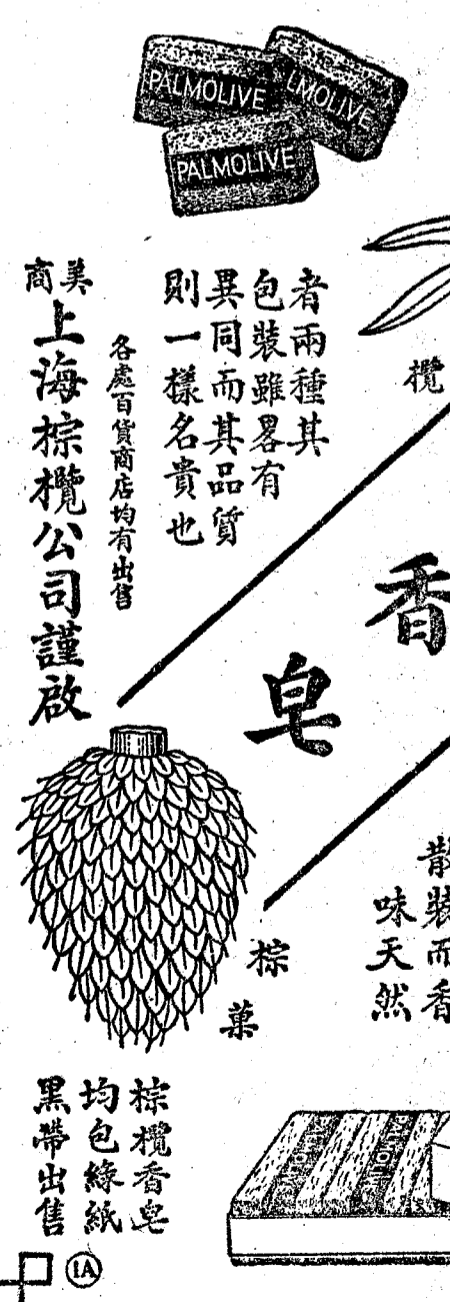 PALMOLIVE
LMOLIVE
PALMOLIVE
欖
香
皂
者兩種其
包裝雖畧有
異同而其品質
則一樣名貴也
各處百貨商店均有出售
美商
上海棕欖公司謹啟
散裝而香
味天然
棕菓
棕欖香皂
均包綠紙
黑帶出售
PALMOLIVE
PALMOLIVE
PALMOLIVE
1A